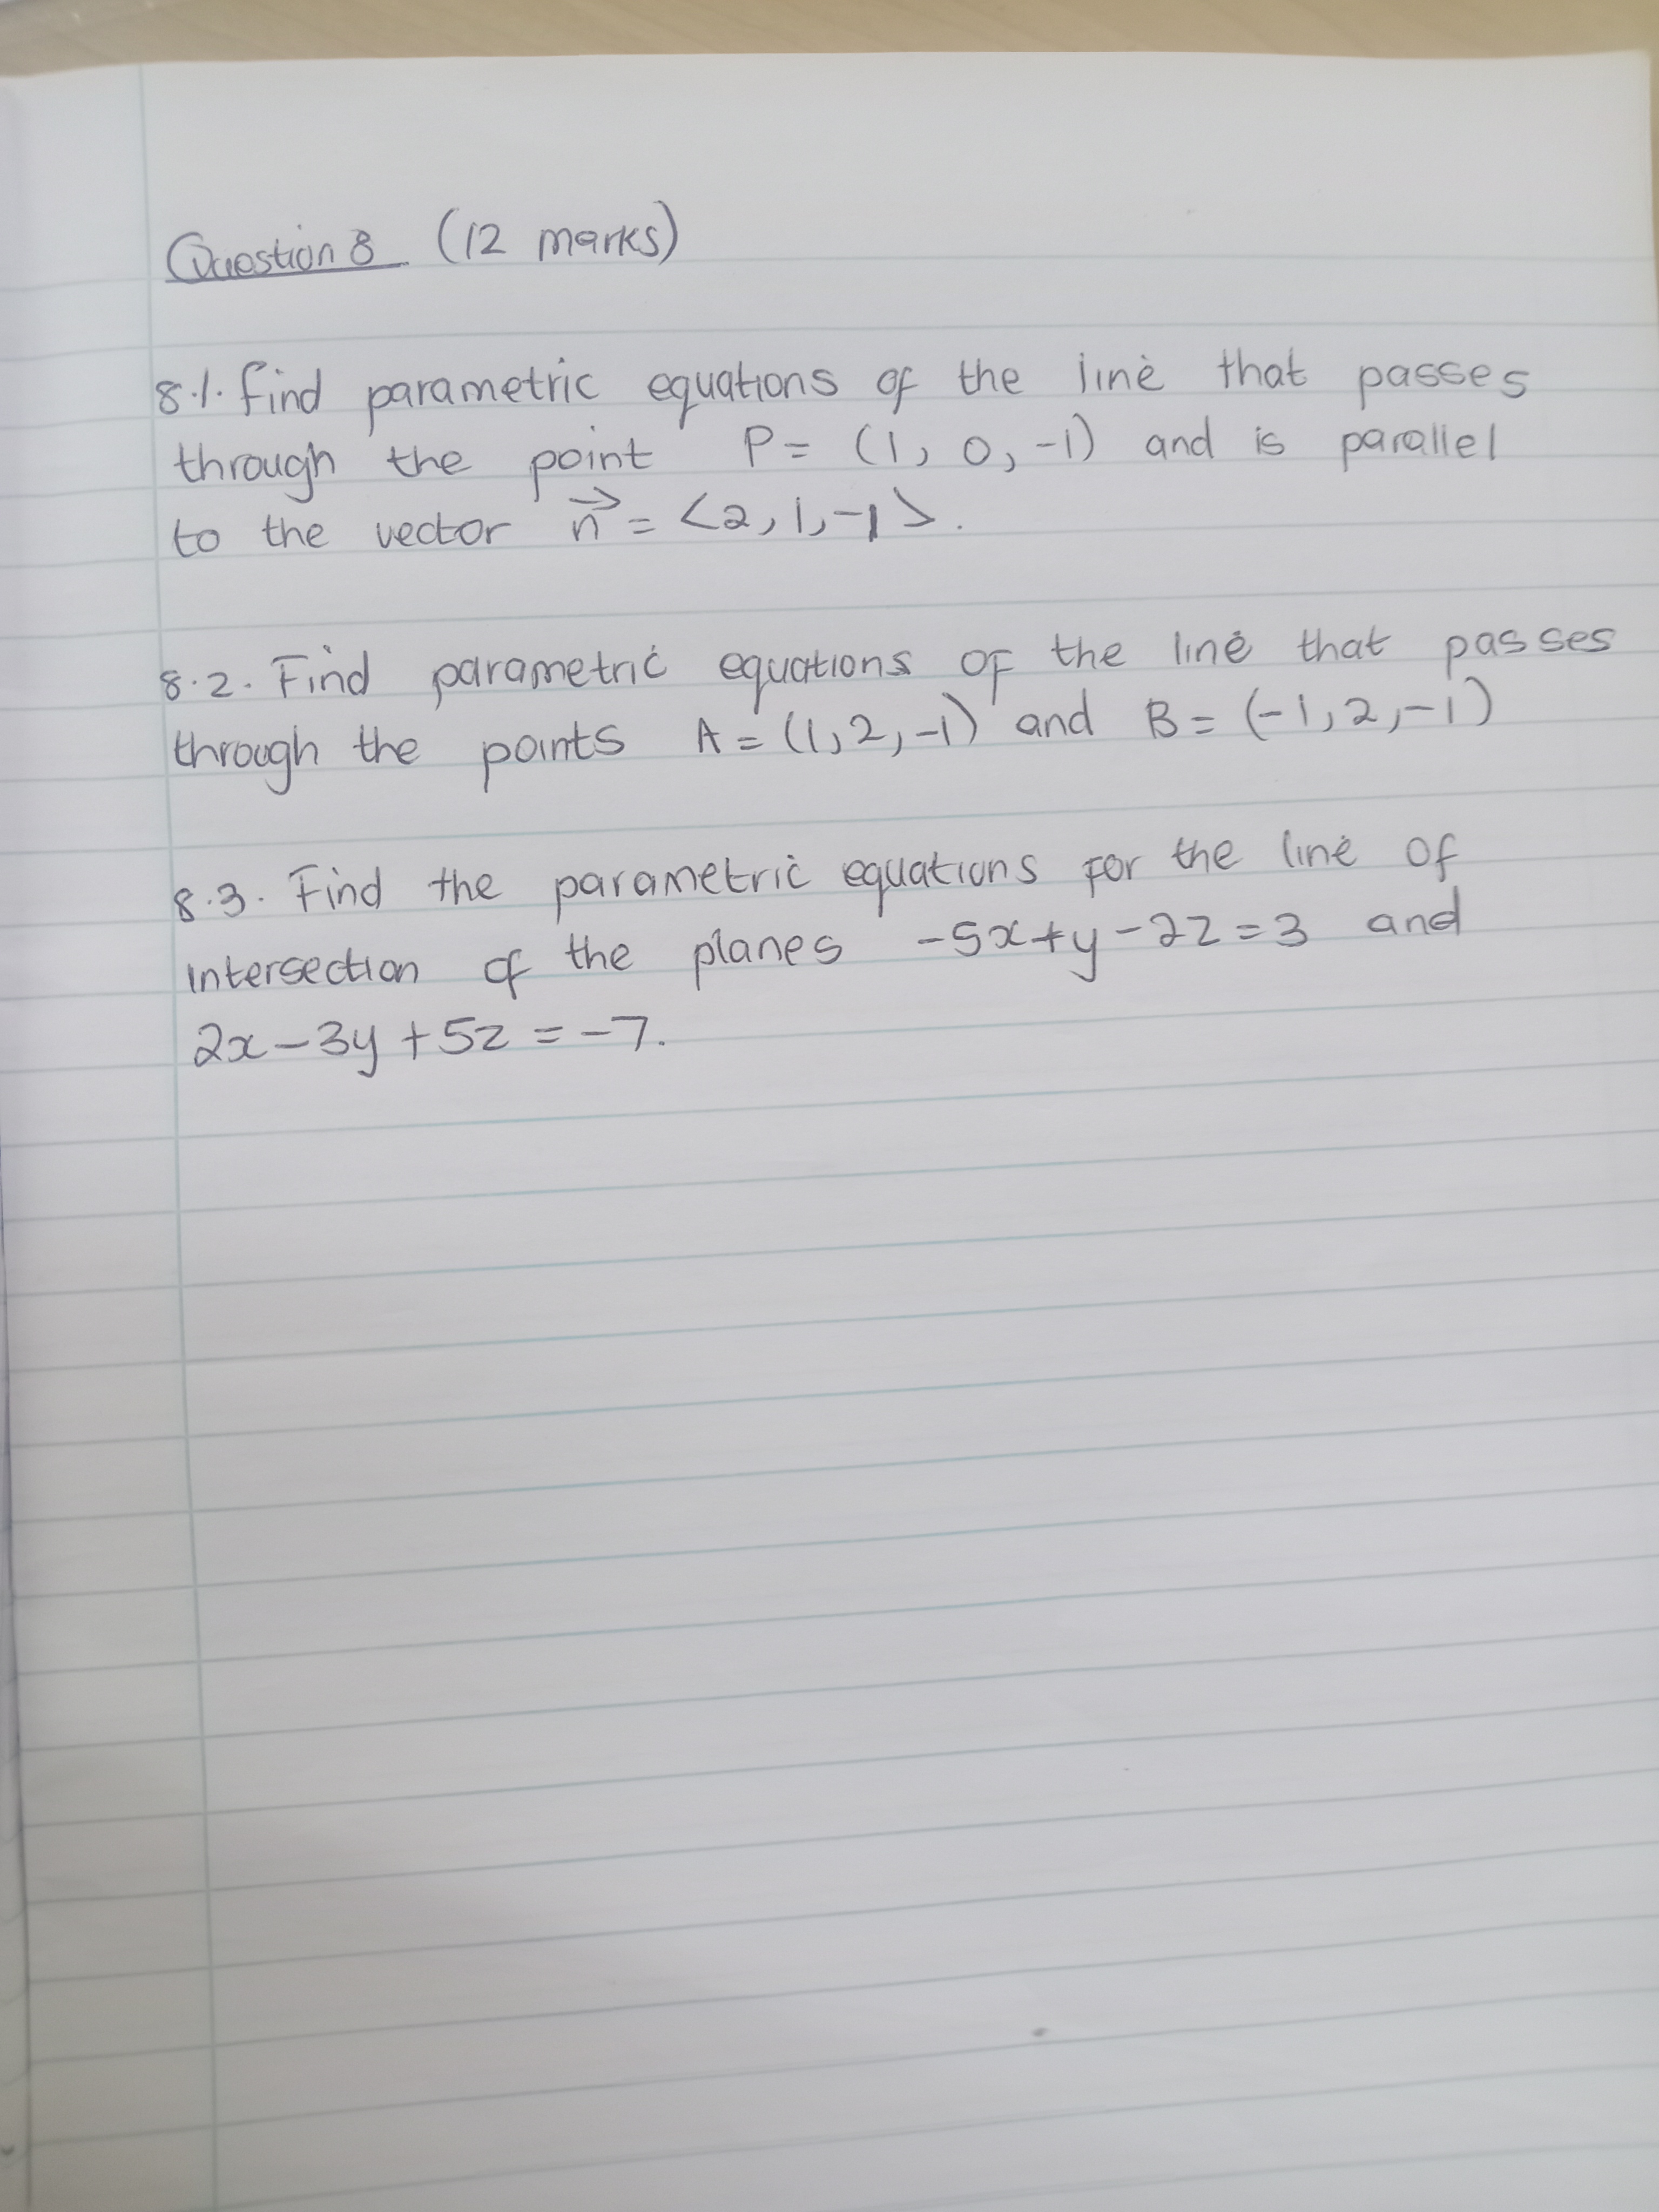 Question 8 (12 marks)
8.1. find parametric equations of the line that passes
through the point P = (1, 0, -1) and is parallel
to the vector n⃗ = <2, 1, -1>.
8.2. Find parametric equations of the line that passes
through the points A = (1, 2, -1) and B = (-1, 2, -1)
8.3. Find the parametric equations for the line of
intersection of the planes -5x+y-2z=3 and
2x-3y+5z = -7.